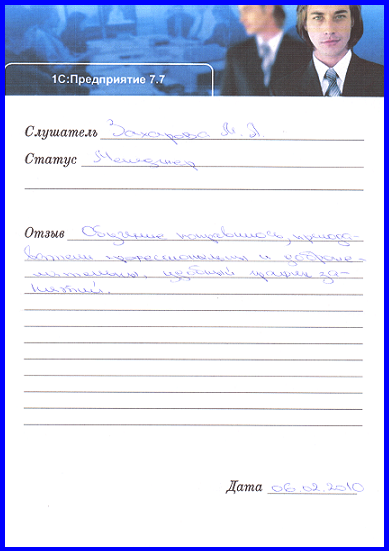 1С:Предприятие 7.7
Слушатель Захарова М. А.
Статус Менеджер
Отзыв Обучение понравилось, препода-
ватели профессиональны и доброже-
лательны, удобный график за-
нятий.
Дата 06.02.2010